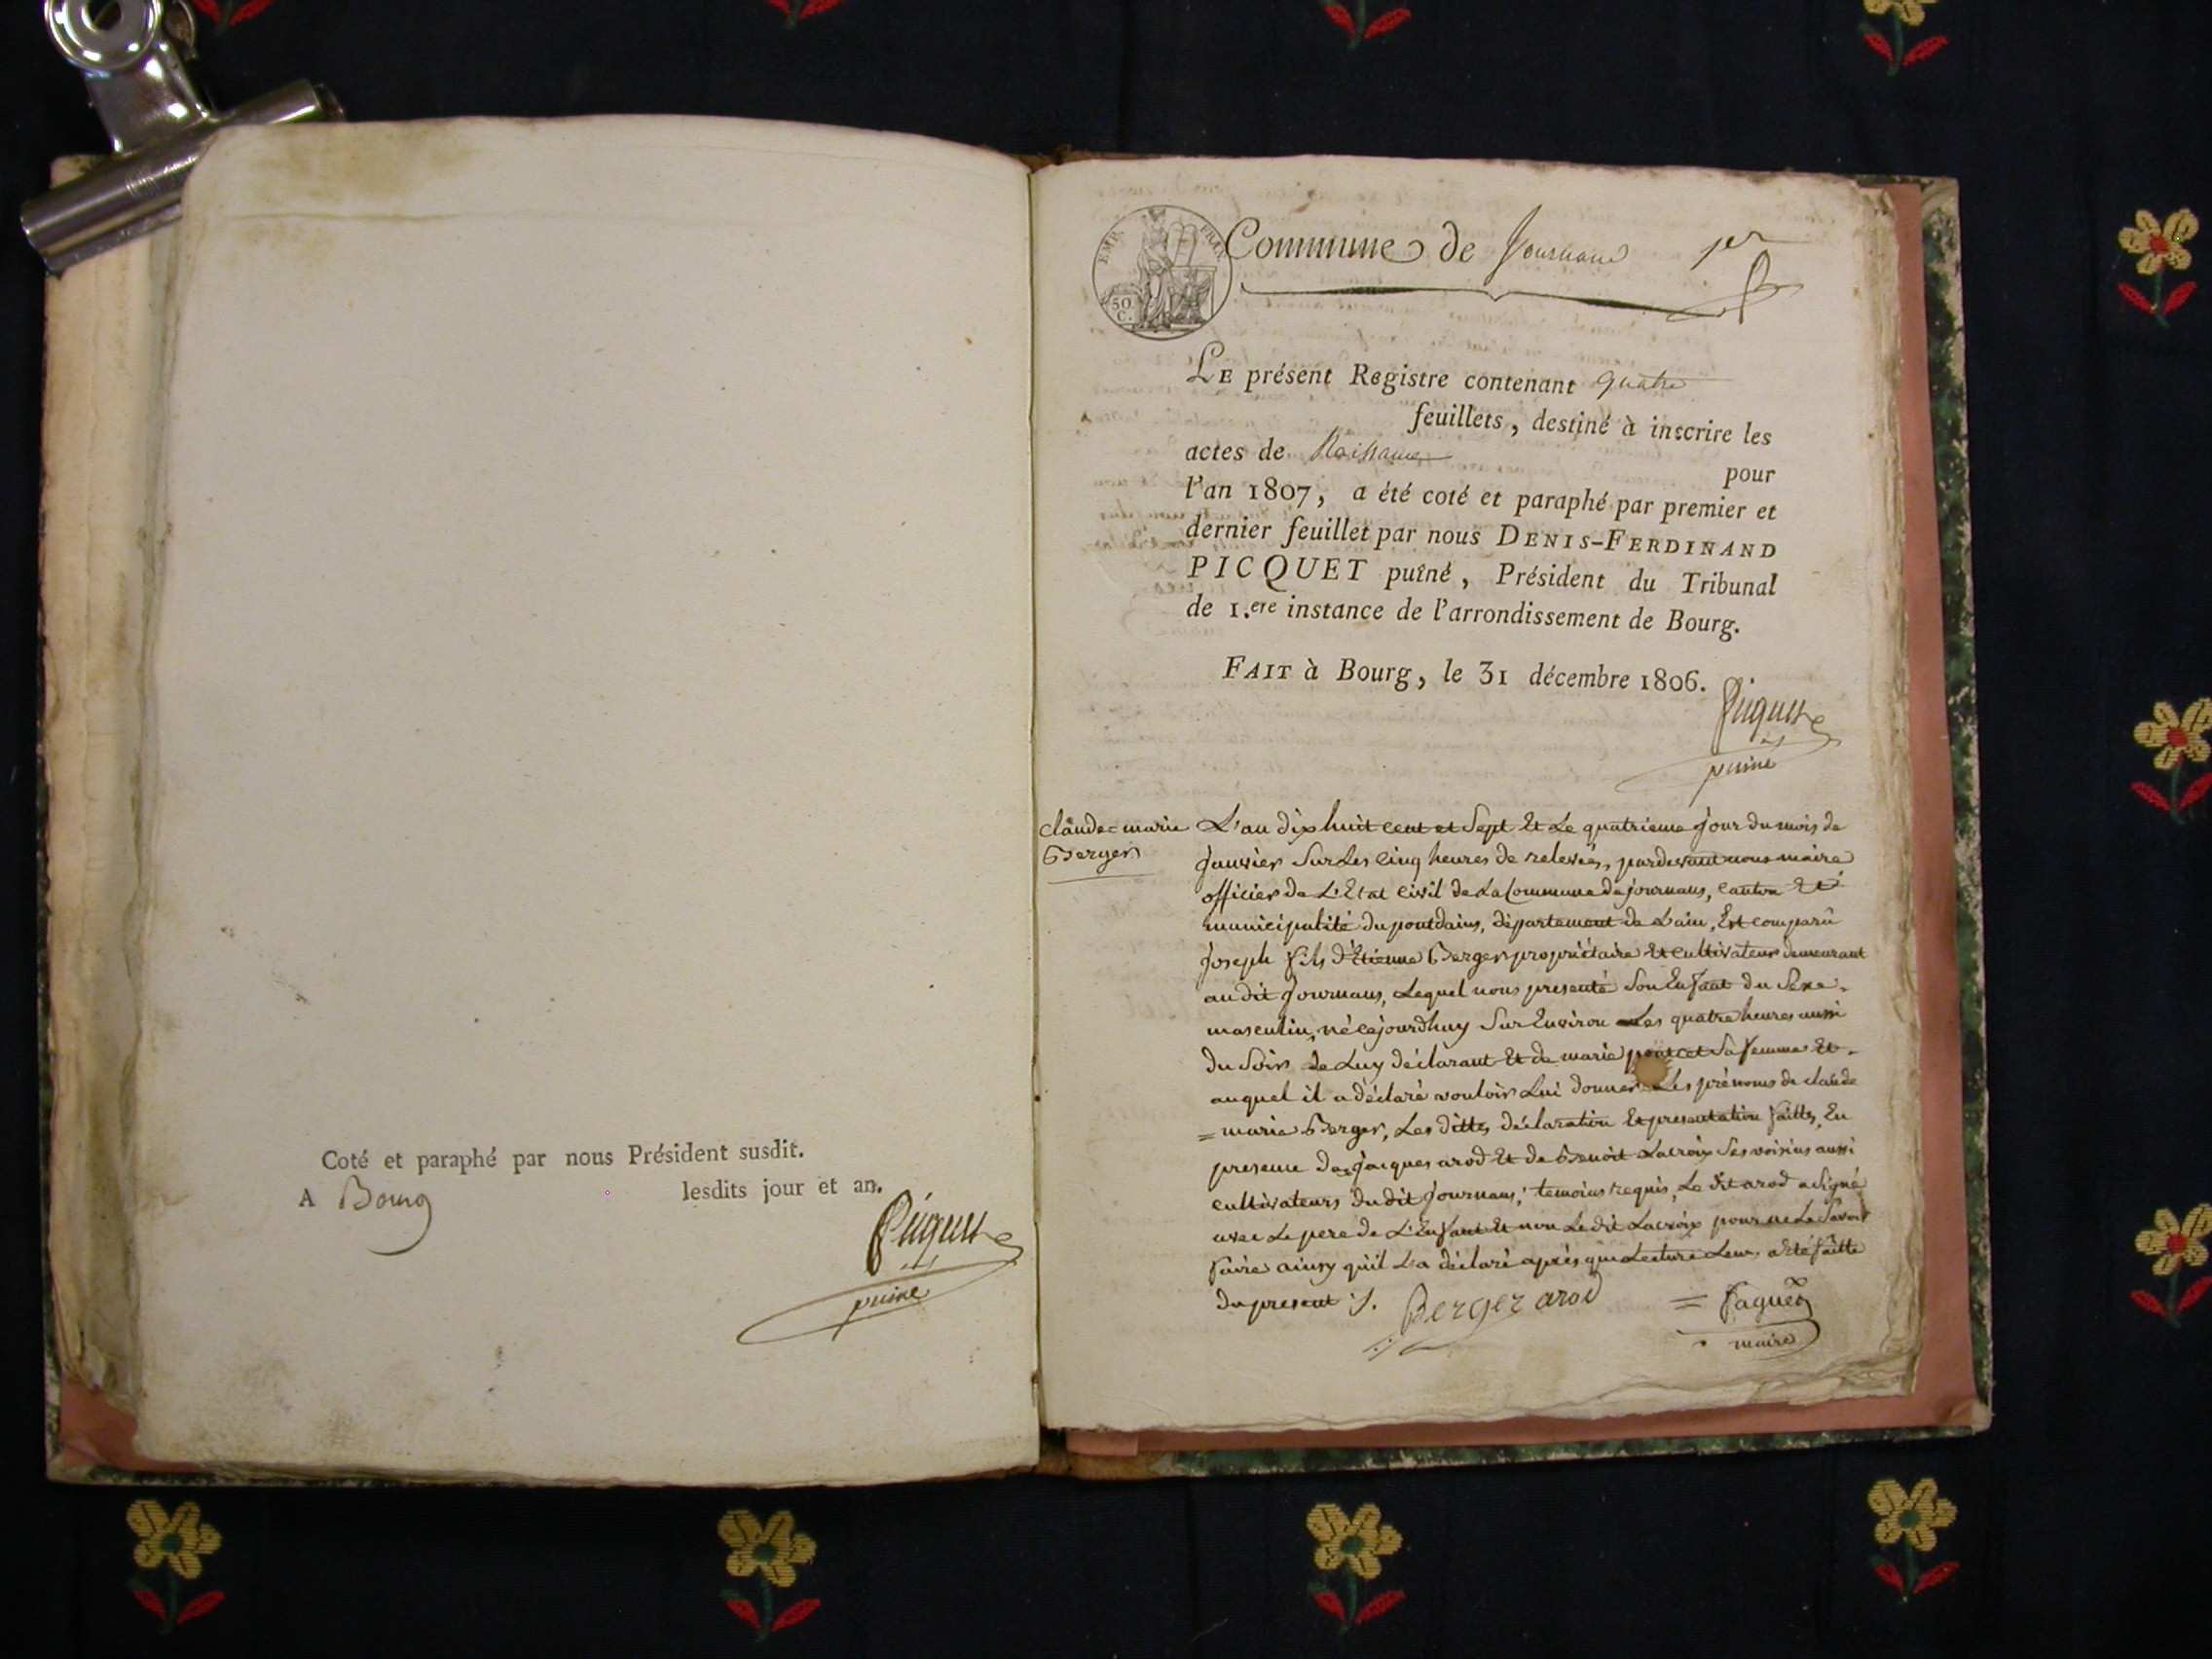 Coté et paraphé par nous Président susdit.
A Bourg lesdits jour et an.
Picquet
puiné
EMP. FRAN.
50
C.
Commune de Journans 1er
LE présent Registre contenant quatre
feuillets, destiné à inscrire les
actes de Naissance pour
l'an 1807, a été coté et paraphé par premier et
dernier feuillet par nous DENIS-FERDINAND
PICQUET puîné, Président du Tribunal
de 1.ere instance de l'arrondissement de Bourg.
FAIT à Bourg, le 31 décembre 1806.
Picquet
puiné
claude=marie
Berger
L'an dix huit cent et Sept Et Le quatrieme Jour du mois de
Janvier Sur Les Cinq heures de relevés, pardevant nous maire
officier de L'Etat Civil de La Commune de journans, canton Et
municipalité du pontdains, département de Lain, Est comparû
Joseph fils d'Etienne Berger propriétaire Et cultivateur demeurant
audit Journans, Lequel nous presenté Son Enfant du Sexe
masculin, né cejourdhuy Sur Environ Les quatre heures aussi
du Soir de Luy déclarant Et de marie poncet Sa femme Et
auquel il a déclaré vouloir Lui donner Les prénoms de claude
=marie Berger, Les dittes déclaration Et presentation faittes, En
presence de Jacques arod Et de Benoit Lacroix Ses voisins aussi
cultivateurs dudit Journans, temoins requis, Le dit arod a Signé
avec Le pere de L'Enfant Et non Le dit Lacroix pour ne Le Savoir
faire ainsy qu'il L'a déclaré après que Lecture Leur a Eté faitte
du present /.
Berger arod = faguet
maire